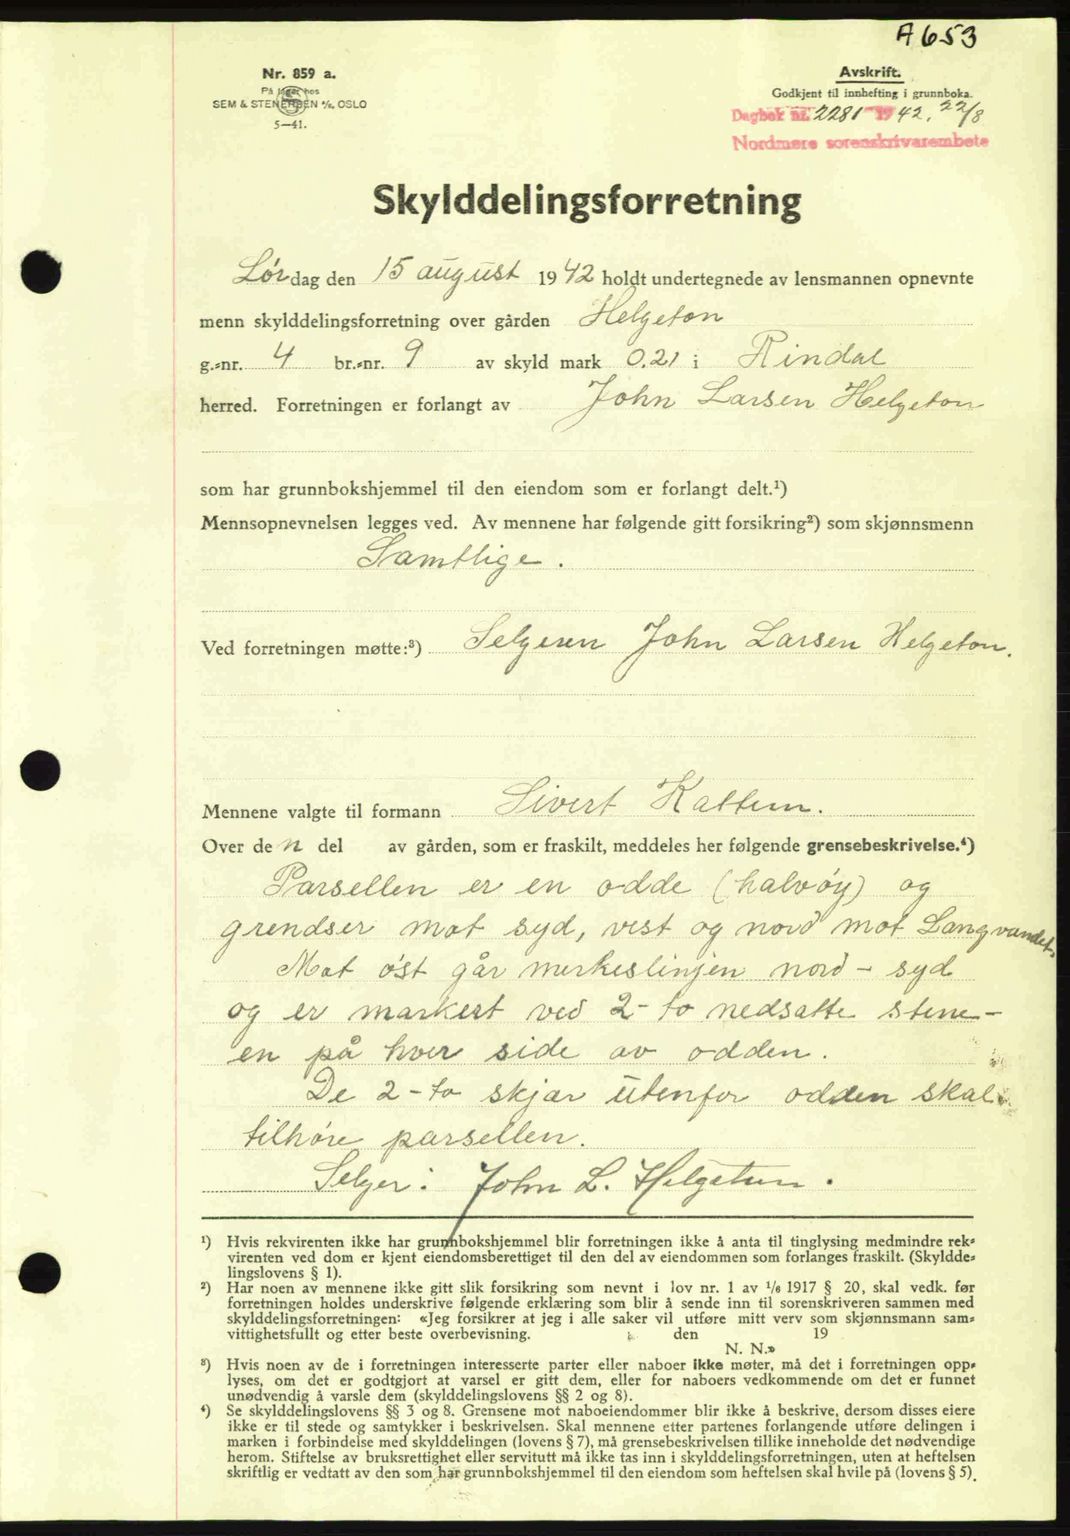 A 653
Nr. 859 a.
På lager hos
SEM & STENERSEN A/S. OSLO
5-41.
Avskrift.
Godkjent til innhefting i grunnboka.
Dagbok nr. 2281 1942, 22/8
Nordmøre sorenskrivarembete
Skylddelingsforretning
Lørdag den 15 august 1942 holdt undertegnede av lensmannen opnevnte
menn skylddelingsforretning over gården Helgeton
g.-nr. 4 br.-nr. 9 av skyld mark 0.21 i Rindal
herred. Forretningen er forlangt av John Larsen Helgeton
som har grunnbokshjemmel til den eiendom som er forlangt delt.¹)
Mennsopnevnelsen legges ved. Av mennene har følgende gitt forsikring²) som skjønnsmenn
Samtlige.
Ved forretningen møtte:³) Selgeren John Larsen Helgeton.
Mennene valgte til formann Sivert Kattem.
Over den del av gården, som er fraskilt, meddeles her følgende grensebeskrivelse.⁴)
Parsellen er en odde (halvøy) og
grendser mot syd, vest og nord mot Langvandet.
Mot øst går merkeslinjen nord - syd
og er markert ved 2-to nedsatte stene-
en på hver side av odden.
De 2-to skjær utenfor odden skal
tilhøre parsellen.
Selger: John L. Helgetun.
¹) Hvis rekvirenten ikke har grunnbokshjemmel blir forretningen ikke å anta til tinglysing medmindre rek-
virenten ved dom er kjent eiendomsberettiget til den del av eiendommen som forlanges fraskilt. (Skyldde-
lingslovens § 1).
²) Har noen av mennene ikke gitt slik forsikring som nevnt i lov nr. 1 av 1/6 1917 § 20, skal vedk. før
forretningen holdes underskrive følgende erklæring som blir å sende inn til sorenskriveren sammen med
skylddelingsforretningen: «Jeg forsikrer at jeg i alle saker vil utføre mitt verv som skjønnsmann sam-
vittighetsfullt og etter beste overbevisning. den 19
N. N.»
³) Hvis noen av de i forretningen interesserte parter eller naboer ikke møter, må det i forretningen opp-
lyses, om det er godtgjort at varsel er gitt dem, eller for naboers vedkommende om det er funnet
unødvendig å varsle dem (skylddelingslovens §§ 2 og 8).
⁴) Se skylddelingslovens §§ 3 og 8. Grensene mot naboeiendommer blir ikke å beskrive, dersom disses eiere
ikke er til stede og samtykker i beskrivelsen. Skal mennene etter partenes forlangende utføre delingen i
marken i forbindelse med skylddelingen (lovens § 7), må grensebeskrivelsen tillike inneholde det nødvendige
herom. Stiftelse av bruksrettighet eller servitutt må ikke tas inn i skylddelingsforretningen, uten at heftelsen
skriftlig er vedtatt av den som har grunnbokshjemmel til den eiendom som heftelsen skal hvile på (lovens § 5).